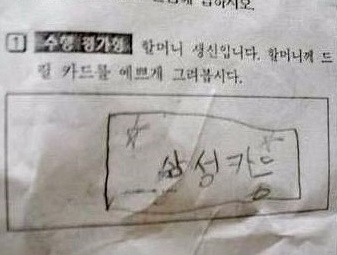 답하시오.
1 수행 평가형 할머니 생신입니다. 할머니께 드
릴 카드를 예쁘게 그려봅시다.
삼성카드